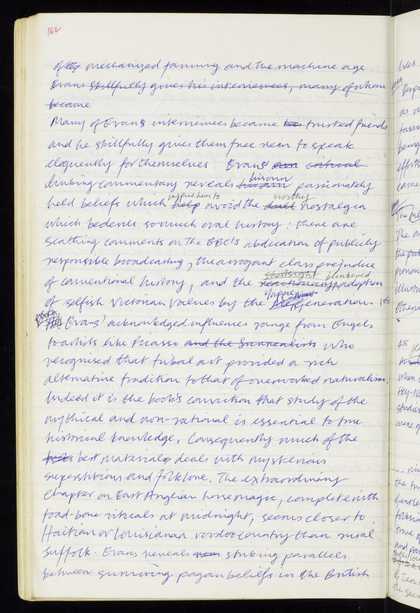 162
of mechanized farming and the machine age
Evans skillfully gives his interviewees, many of whom
became
Many of Evans interviewees became trusted friends
and he skillfully gives them free rein to speak
eloquently for themselves. Evans' critical
linking commentary reveals his own passionately
held beliefs which help avoid the dull worthy nostalgia
which bedevils so much oral history: there are
scathing comments on the BBC's abdication of publicly
responsible broadcasting, the arrogant class prejudice
of conventional history, and the blinkered adoption
of selfish Victorian values by the generation.
Evans' acknowledged influences range from Engels
to artists like Picasso and the Surrealists who
recognised that tribal art provided a rich
alternative tradition to that of overworked naturalism.
Indeed it is the book's conviction that study of the
mythical and non-rational is essential to true
historical knowledge. Consequently much of the
best material deals with mysterious
superstitions and folklore. The extraordinary
chapter on East Anglian horse magic, complete with
toad-bone rituals at midnight, seems closer to
Haitian or Louisianan voodoo country than rural
Suffolk. Evans reveals striking parallels
between surviving pagan beliefs in the British